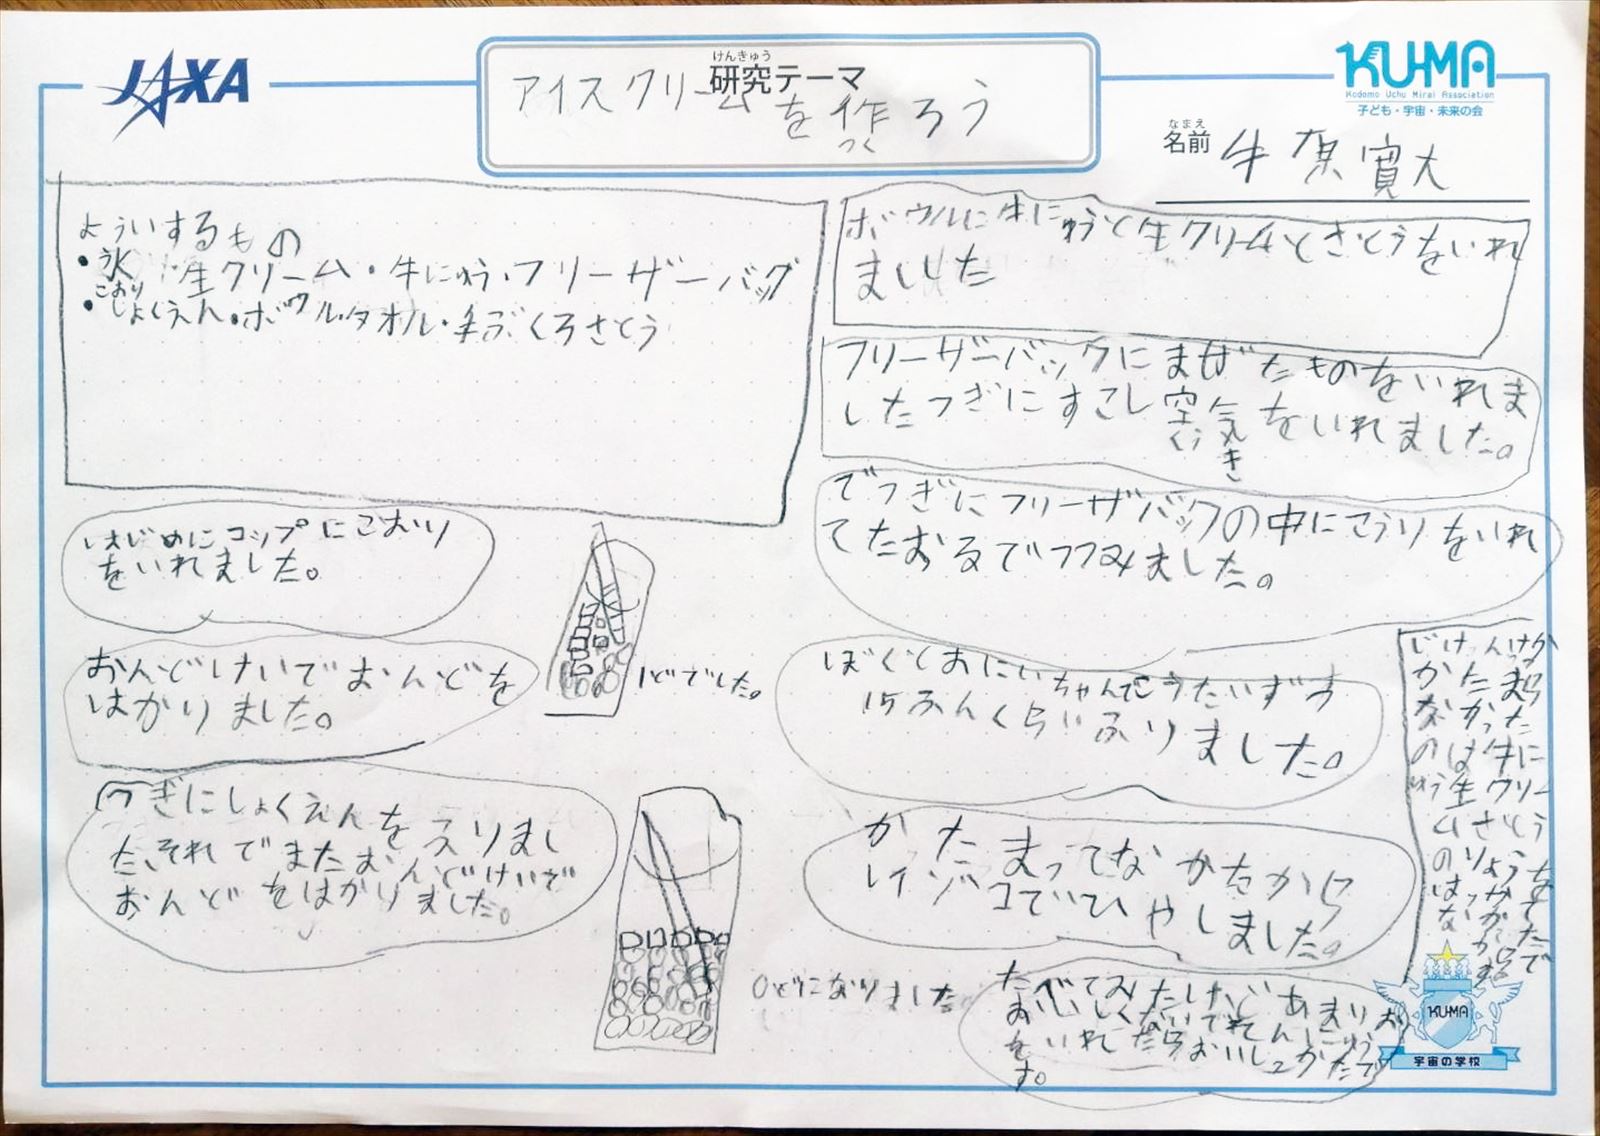 JAXA
けんきゅう
研究テーマ
アイスクリームを作ろう
つく
KU-MA
Kodomo Uchu Mirai Association
子ども・宇宙・未来の会
なまえ
名前
牛原寛大
よういするもの
・氷 生クリーム・牛にゅう・フリーザーバッグ
こおり
・しょくえん・ボウル・タオル・手ぶくろさとう
はじめにコップにこおり
をいれました。
おんどけいでおんどを
はかりました。
1どでした。
つぎにしょくえんを入りまし
た、それでまたおんどけいで
おんどをはかりました。
0どになりました
ボウルに牛にゅうと生クリームとさとうをいれ
ました
フリーザーバックにまぜたものをいれま
したつぎにすこし空気をいれました。
くう き
でつぎにフリーザバックの中にこうりをいれ
てたおるでつつみました。
ぼくとおにいちゃんでこうたいずす
15ふんくらいふりました。
かたまってなかたから
レイゾコでひやしました。
たべてみたけどあまりお
いしくないでれんにゅう
をいれたらおいしかたで
す。
KU-MA
宇宙の学校